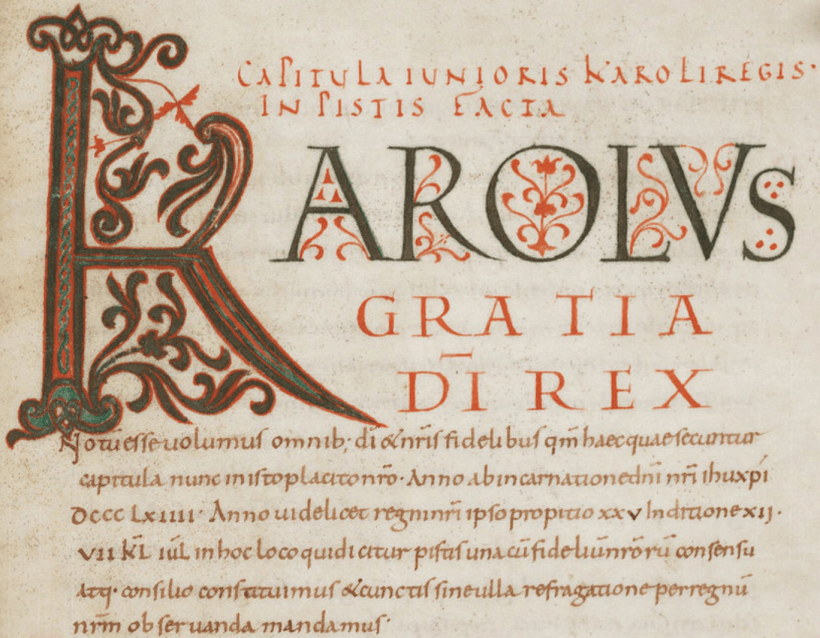 CAPITULA IUNIORIS KAROLI REGIS·
IN PISTIS FACTA
KAROLVS
GRATIA
DĪ REX
Notu esse uolumus omnib; dī & nr̄is fidelibus qm̄ haec quae secuntur
capitula nunc in isto placito nr̄o· Anno ab incarnatione dn̄i nr̄i ihu xp̄i
DCCC LXIIII· Anno uidelicet regni nr̄i ipso propitio xxv Indictione xii·
VII KL̄ IUL̄ in hoc loco qui dicitur pistis una cū fideliū nr̄orū consensu
atq· consilio constituimus & cunctis sine ulla refragatione per regnū
nr̄m obseruanda mandamus·